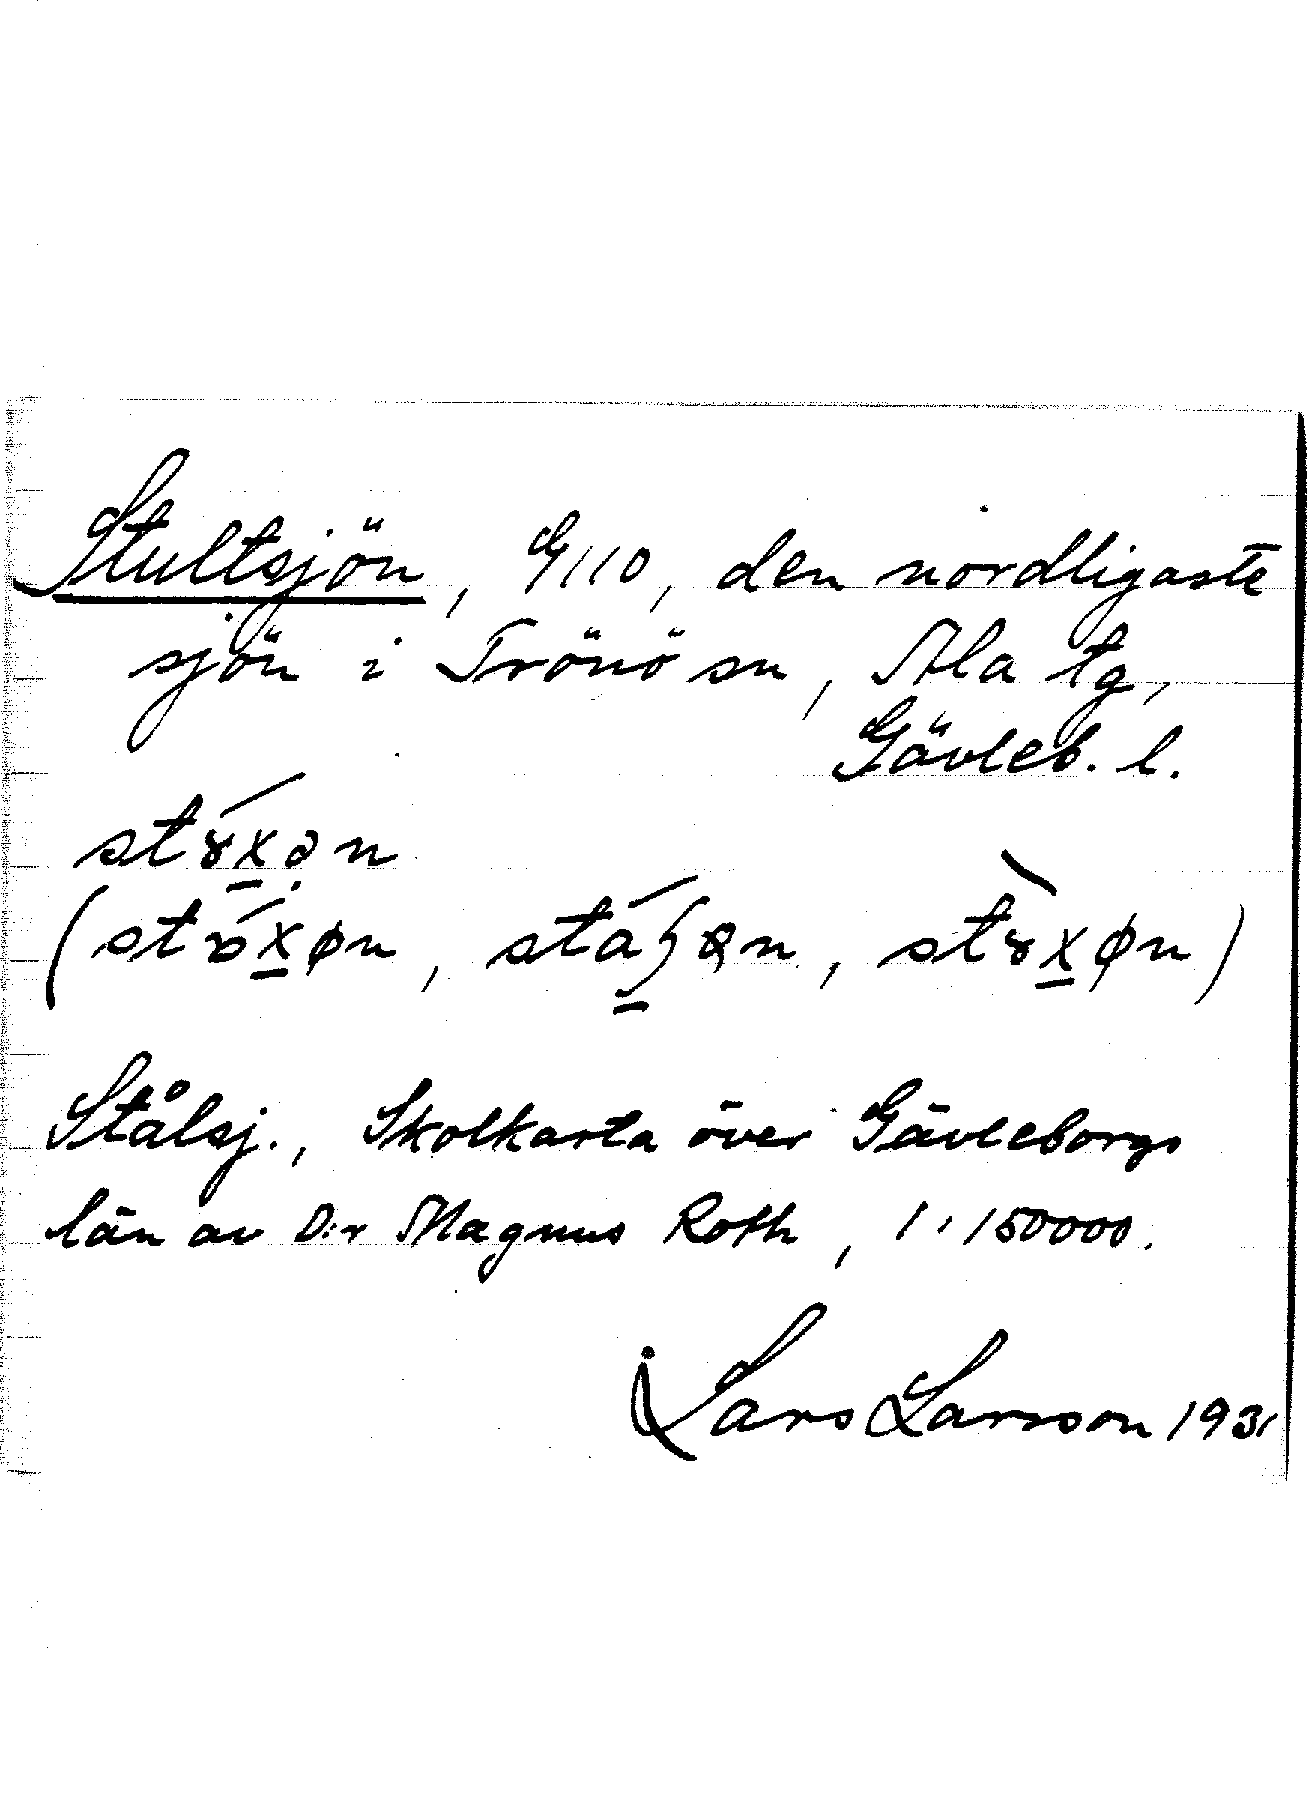 Stultsjön, G110, den nordligaste
sjön i Trönö sn, Ala tg,
Gävleb. l.
Stålsj., Skolkarta över Gävleborgs
län av D:r Magnus Roth, 1:150000.
Lars Larsson 1931